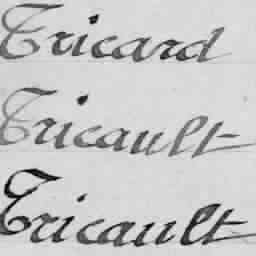 Tricard
Tricault
Tricault